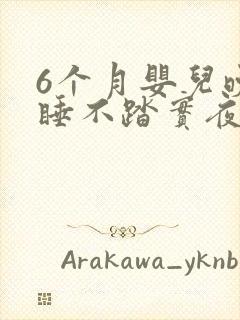 6个月嬰兒晚
睡不踏實夜
Arakawa_yknb